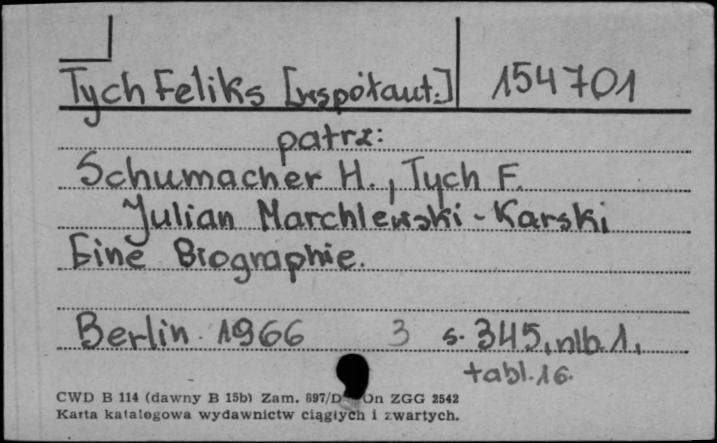 Tych Feliks [współaut.] 154701
patrz:
Schumacher H., Tych F.
Julian Marchlewski-Karski
Eine Biographie.
Berlin 1966 3 s. 345, nlb. 1,
tabl. 16.
CWD B 114 (dawny B 15b) Zam. 897/D On ZGG 2542
Karta katalogowa wydawnictw ciągłych i zwartych.